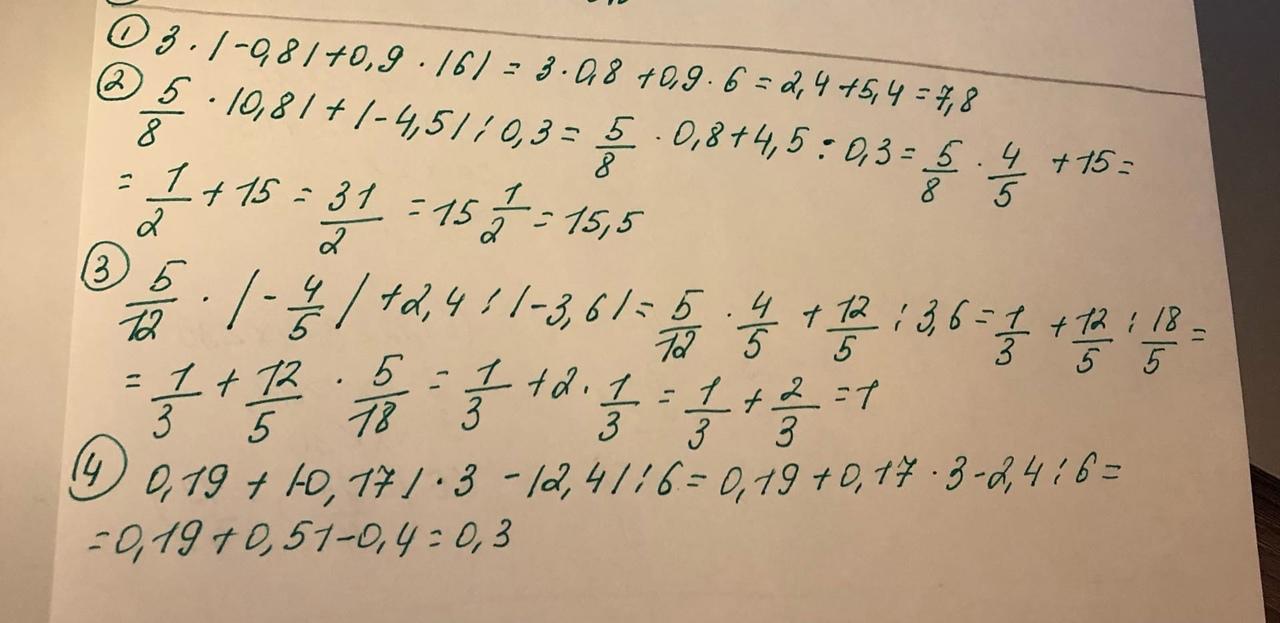 ① 3 · |-0,8| + 0,9 · |6| = 3 · 0,8 + 0,9 · 6 = 2,4 + 5,4 = 7,8
② 5/8 · |0,8| + |-4,5| : 0,3 = 5/8 · 0,8 + 4,5 : 0,3 = 5/8 · 4/5 + 15 =
= 1/2 + 15 = 31/2 = 15 1/2 = 15,5
③ 5/12 · |-4/5| + 2,4 : |-3,6| = 5/12 · 4/5 + 12/5 : 3,6 = 1/3 + 12/5 : 18/5 =
= 1/3 + 12/5 · 5/18 = 1/3 + 2 · 1/3 = 1/3 + 2/3 = 1
④ 0,19 + |-0,17| · 3 - |2,4| : 6 = 0,19 + 0,17 · 3 - 2,4 : 6 =
= 0,19 + 0,51 - 0,4 = 0,3